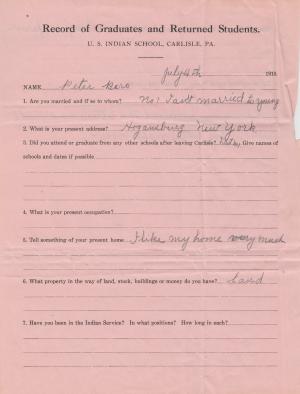 Record of Graduates and Returned Students.
U. S. INDIAN SCHOOL, CARLISLE, PA.
July 4th 1910.
NAME Peter
1. Are you married and if so to whom? No. I aint married to young
2. What is your present address? Hogansburg New York
3. Did you attend or graduate from any other schools after leaving Carlisle? Give names of
schools and dates if possible
4. What is your present occupation?
5. Tell something of your present home I like my home very much
6. What property in the way of land, stock, buildings or money do you have?
7. Have you been in the Indian Service? In what positions? How long in each?